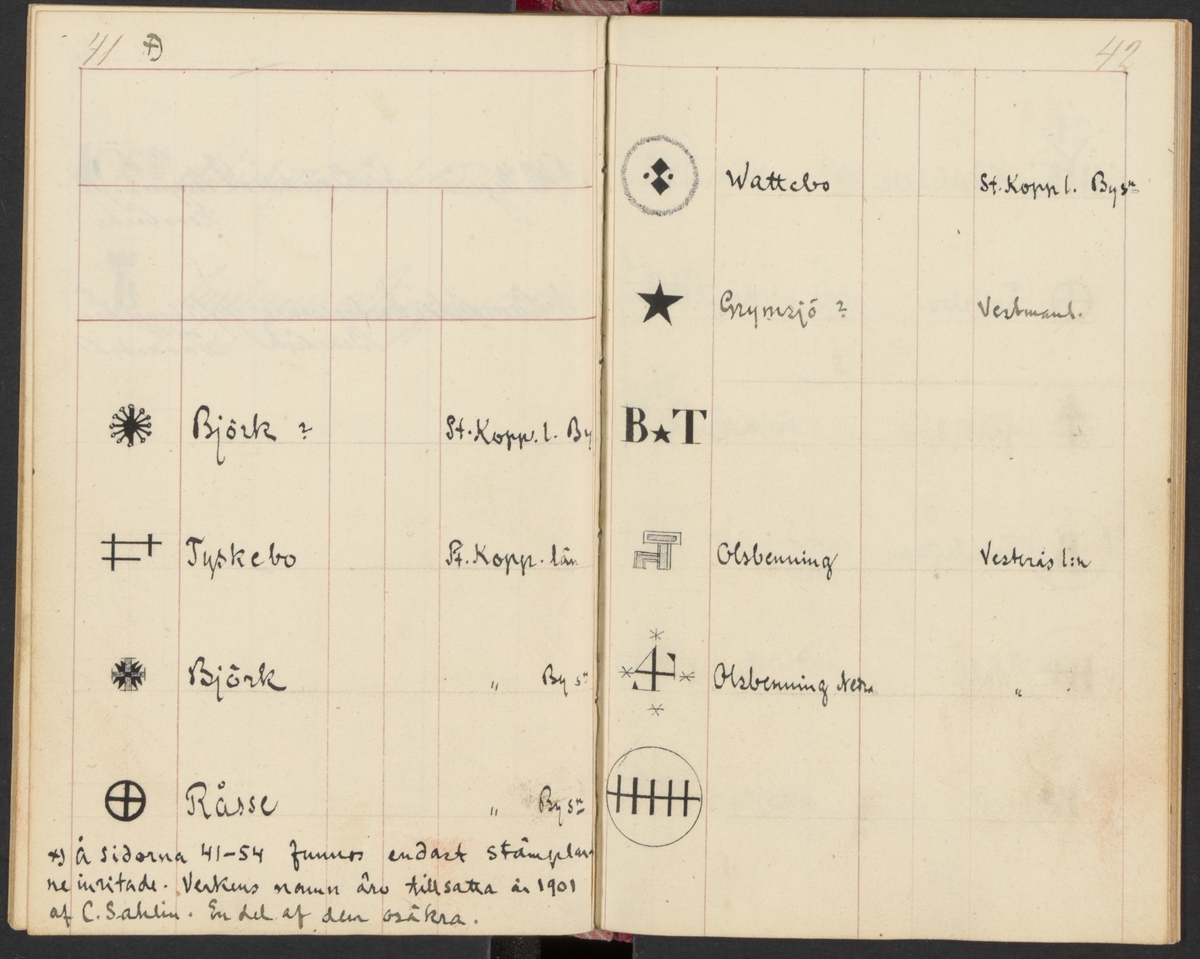 41 +)
Björk ?    St. Kopp. l. By
Tyskebo    St. Kopp. län
Björk    " By sn
Råsse    " By sn
+) Å sidorna 41–54 funnos endast stämplar-
ne inritade. Verkens namn äro tillsatta år 1901
af C. Sahlin. En del af dem osäkra.
42
Wattebo    St. Kopp l. By sn
Grymsjö ?    Vestmanl.
B★T
Olsbenning    Vesterås l:n
4 Olsbenning Nedra    "